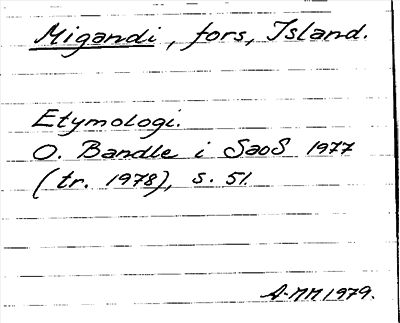 Migandi, fors, Island.
Etymologi.
O. Bandle i SaoS 1977
(tr. 1978), s. 51.
A-MM 1979.